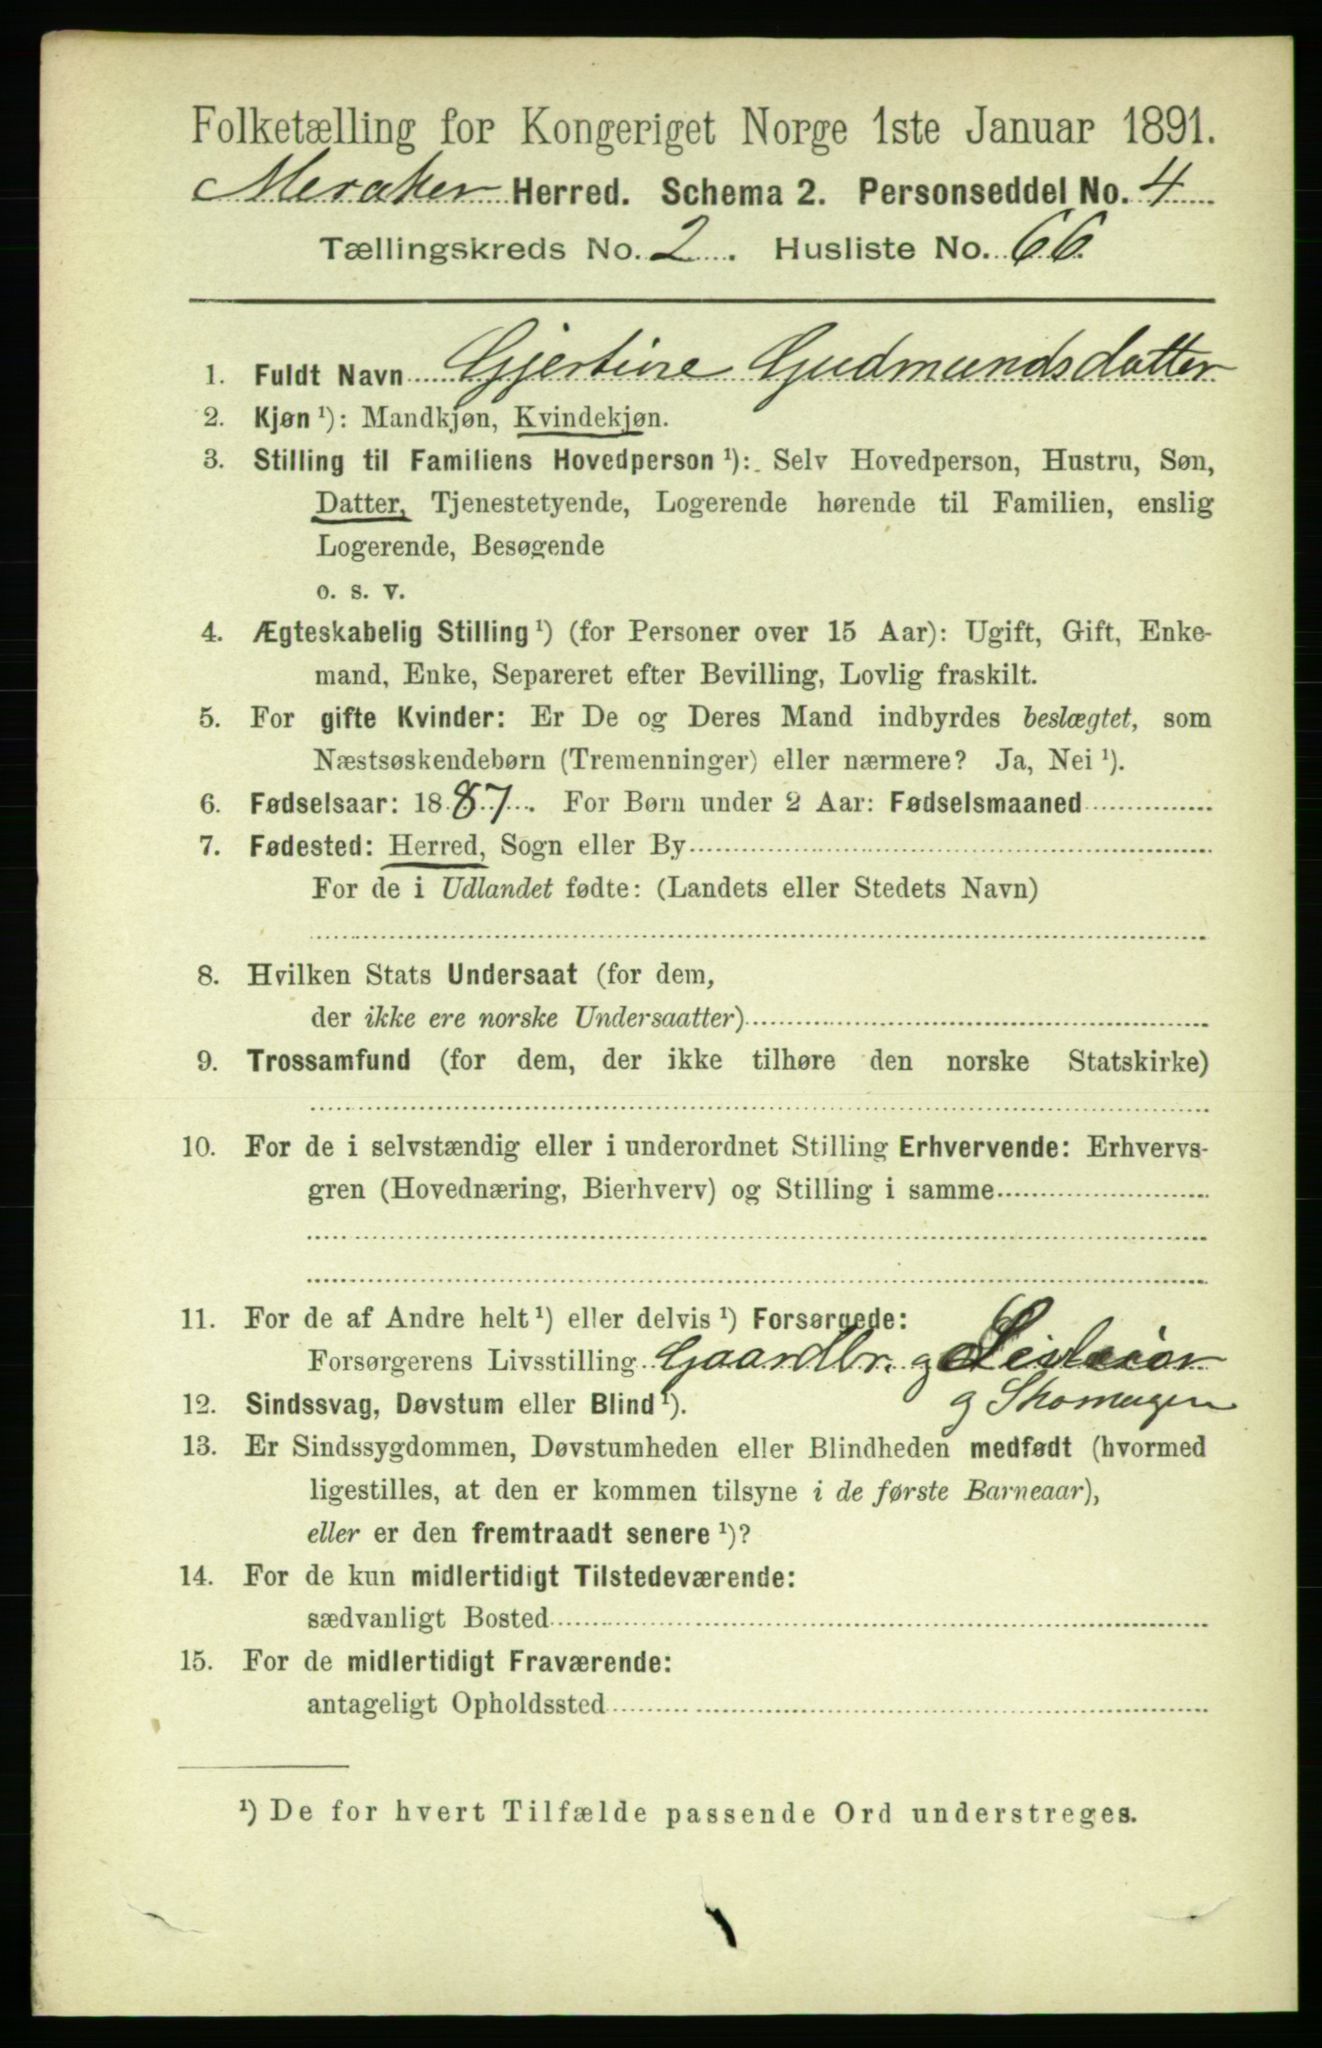 Folketælling for Kongeriget Norge 1ste Januar 1891.
Meraker Herred. Schema 2. Personseddel No. 4
Tællingskreds No. 2. Husliste No. 66
1. Fuldt Navn Gjertine Gudmundsdatter
2. Kjøn ¹): Mandkjøn, Kvindekjøn.
3. Stilling til Familiens Hovedperson ¹): Selv Hovedperson, Hustru, Søn,
Datter, Tjenestetyende, Logerende hørende til Familien, enslig
Logerende, Besøgende
o. s. v.
4. Ægteskabelig Stilling ¹) (for Personer over 15 Aar): Ugift, Gift, Enke-
mand, Enke, Separeret efter Bevilling, Lovlig fraskilt.
5. For gifte Kvinder: Er De og Deres Mand indbyrdes beslægtet, som
Næstsøskendebørn (Tremenninger) eller nærmere? Ja, Nei ¹).
6. Fødselsaar: 1887. For Børn under 2 Aar: Fødselsmaaned
7. Fødested: Herred, Sogn eller By
For de i Udlandet fødte: (Landets eller Stedets Navn)
8. Hvilken Stats Undersaat (for dem,
der ikke ere norske Undersaatter)
9. Trossamfund (for dem, der ikke tilhøre den norske Statskirke)
10. For de i selvstændig eller i underordnet Stilling Erhvervende: Erhvervs-
gren (Hovednæring, Bierhverv) og Stilling i samme
11. For de af Andre helt ¹) eller delvis ¹) Forsørgede:
Forsørgerens Livsstilling Gaardbr. og
12. Sindssvag, Døvstum eller Blind ¹). og Skomager
13. Er Sindssygdommen, Døvstumheden eller Blindheden medfødt (hvormed
ligestilles, at den er kommen tilsyne i de første Barneaar),
eller er den fremtraadt senere ¹)?
14. For de kun midlertidigt Tilstedeværende:
sædvanligt Bosted
15. For de midlertidigt Fraværende:
antageligt Opholdssted
¹) De for hvert Tilfælde passende Ord understreges.